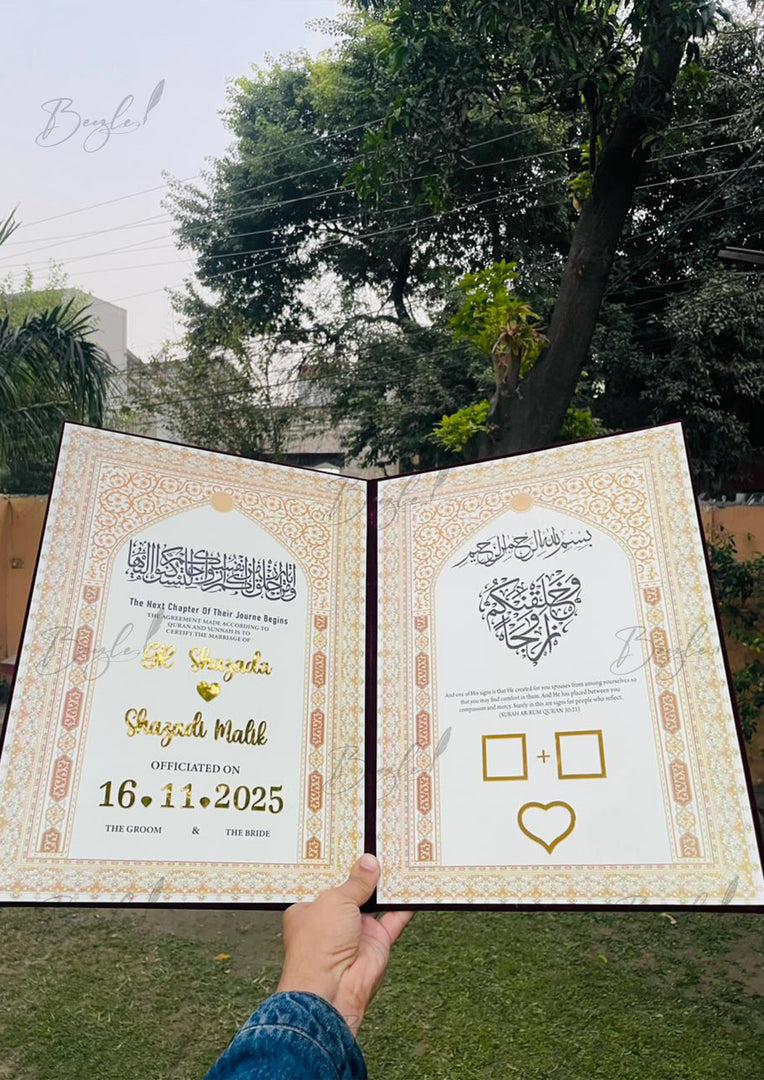 Beezle
ومن آياته أن خلق لكم من أنفسكم أزواجا لتسكنوا إليها
The Next Chapter Of Their Journe Begins
THE AGREEMENT MADE ACCORDING TO
QURAN AND SUNNAH IS TO
CERTIFY THE MARRIAGE OF
Shazada
Shazadi Malik
OFFICIATED ON
16.11.2025
THE GROOM & THE BRIDE
بسم الله الرحمن الرحيم
وخلقنكم
أزواجا
And one of His signs is that He created for you spouses from among yourselves so
that you may find comfort in them. And He has placed between you
compassion and mercy. Surely in this are signs for people who reflect.
(SURAH AR-RUM QURAN 30:21)
+
Beezle
Beezle
Beezle
Beezle